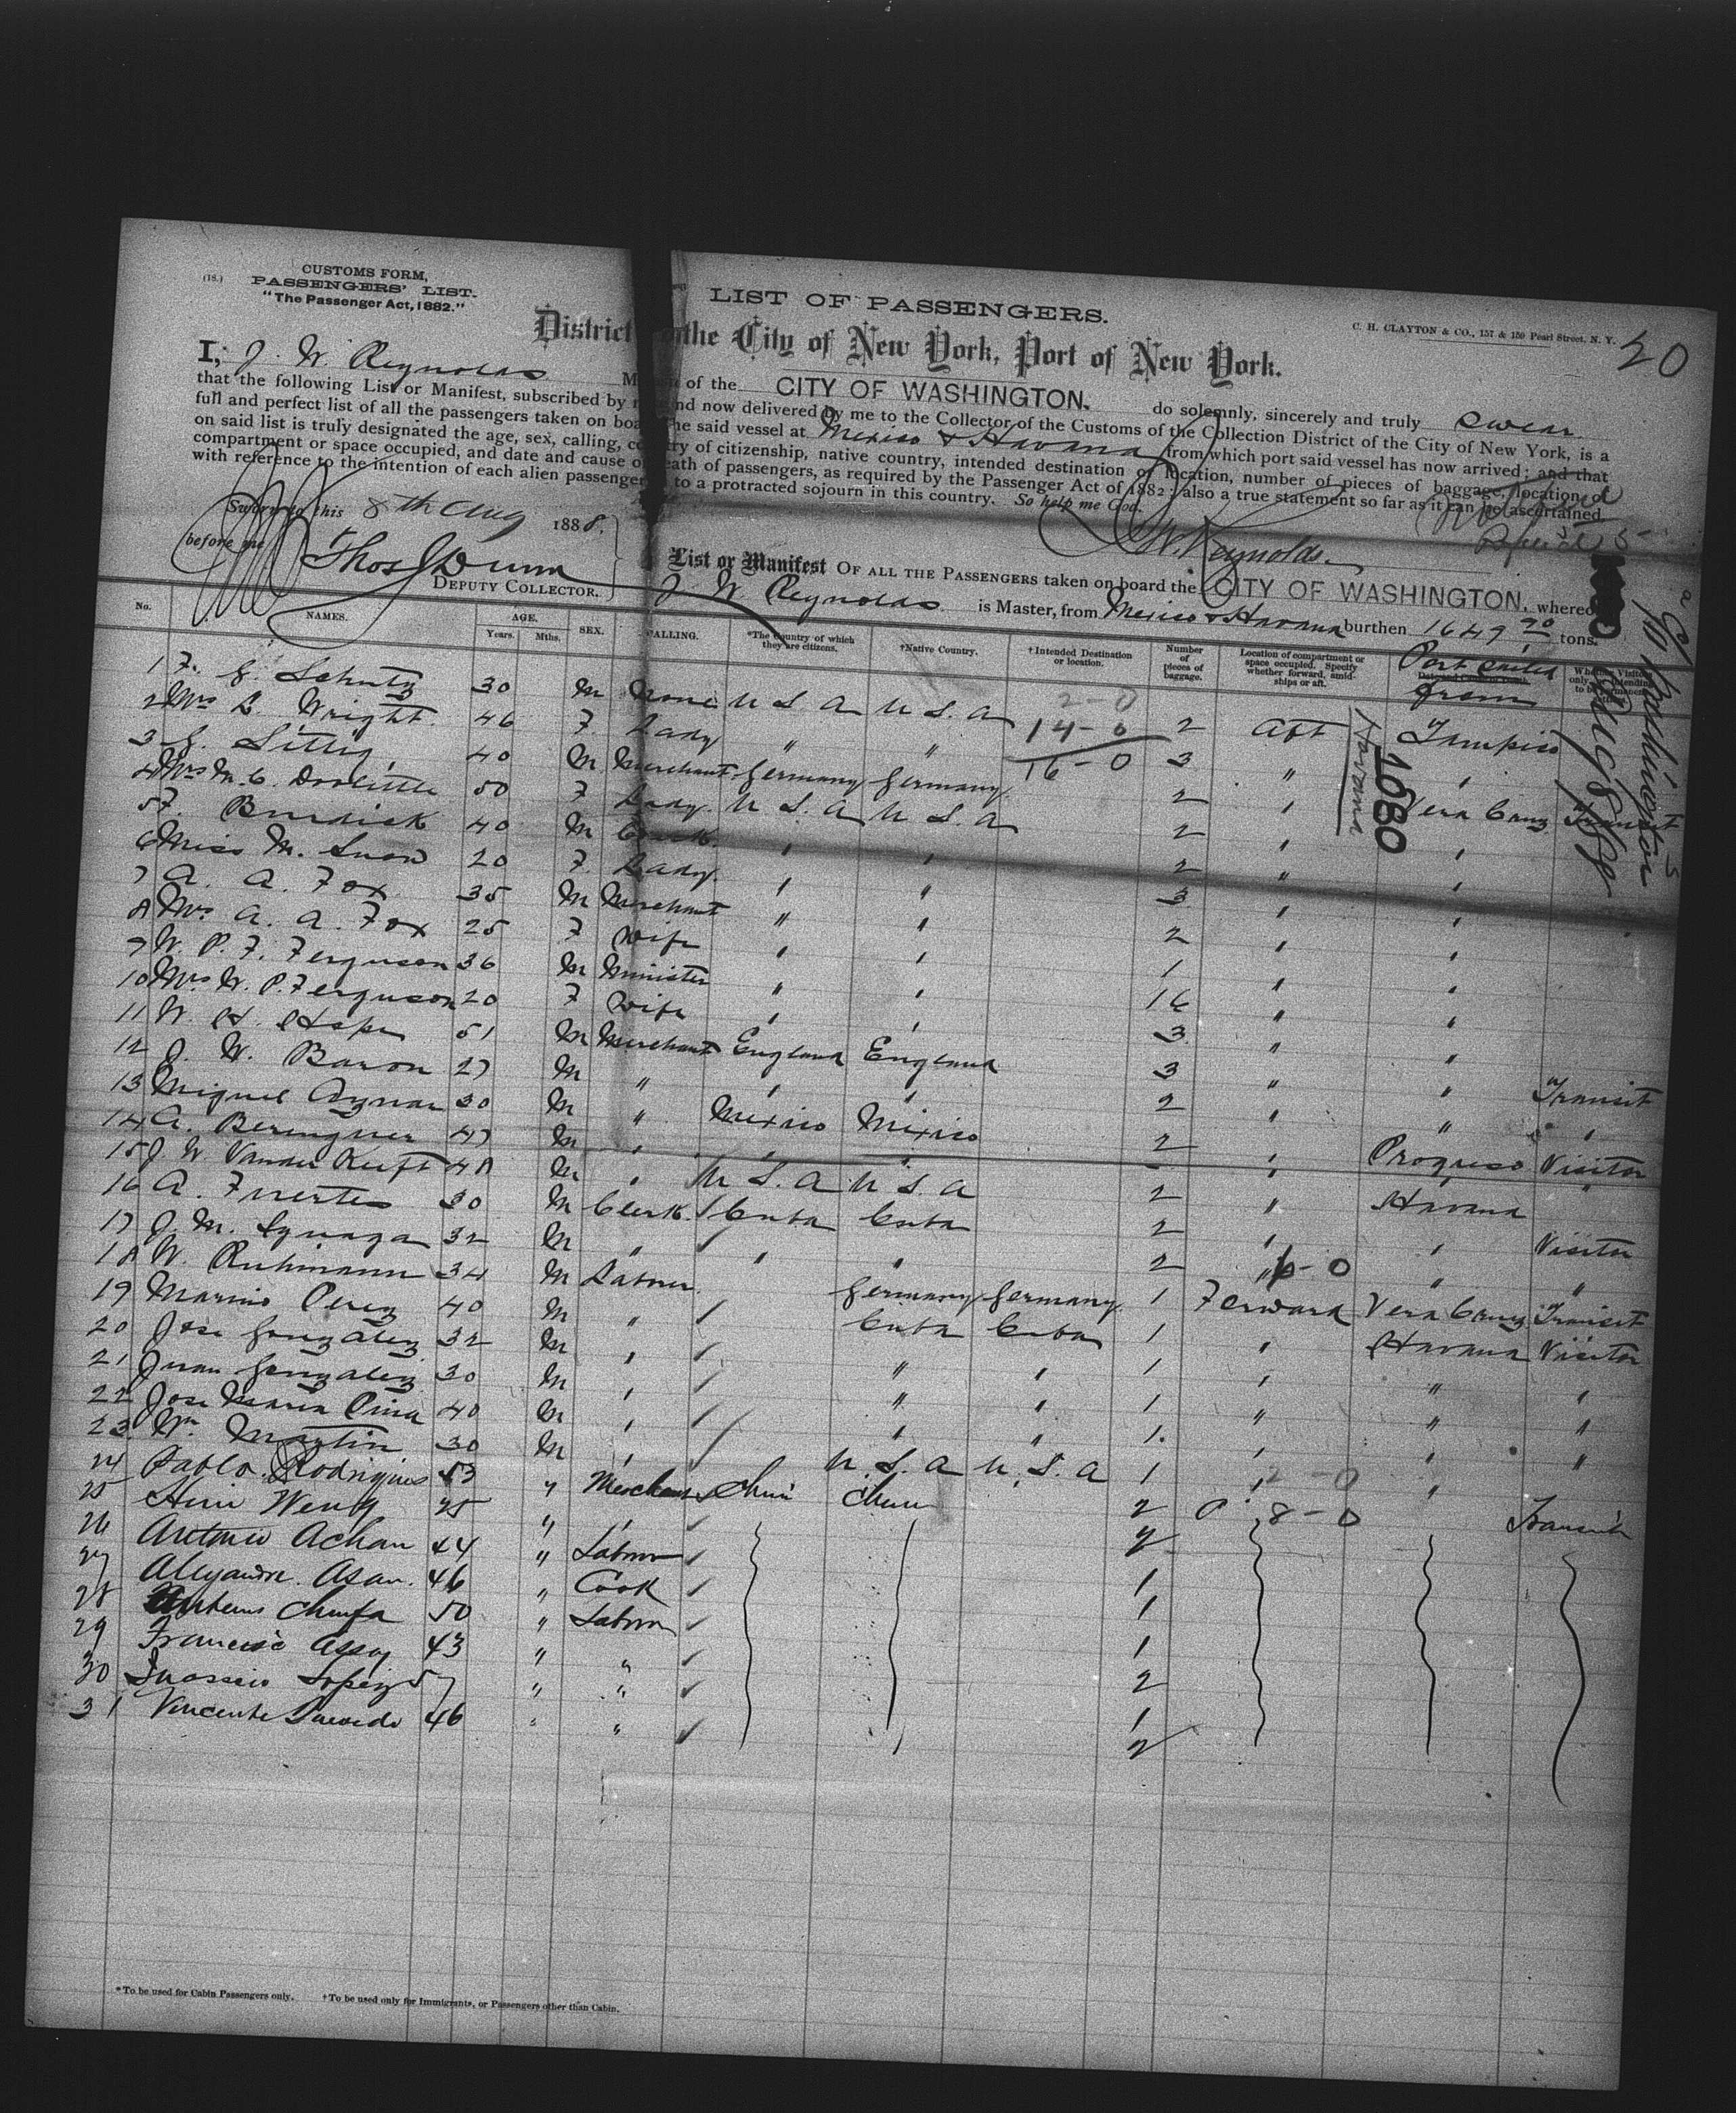 (18.)
CUSTOMS FORM,
PASSENGERS' LIST.
"The Passenger Act, 1882."
LIST OF PASSENGERS.
C. H. CLAYTON & CO., 157 & 159 Pearl Street, N. Y.
20
District the City of New York, Port of New York.
I, J. W. Reynolds M of the CITY OF WASHINGTON. do solemnly, sincerely and truly swear
that the following List or Manifest, subscribed by and now delivered by me to the Collector of the Customs of the Collection District of the City of New York, is a
full and perfect list of all the passengers taken on boa the said vessel at Mexico & Havana from which port said vessel has now arrived; and that
on said list is truly designated the age, sex, calling, co try of citizenship, native country, intended destination or location, number of pieces of baggage, location of
compartment or space occupied, and date and cause of death of passengers, as required by the Passenger Act of 1882; also a true statement so far as it can be ascertained
with reference to the intention of each alien passenger to a protracted sojourn in this country. So help me God.
Sworn to this 8th Aug 1888.
before me Thos J Dunn
DEPUTY COLLECTOR.
J. W. Reynolds.
List or Manifest OF ALL THE PASSENGERS taken on board the CITY OF WASHINGTON, whereo
J W Reynolds is Master, from Mexico & Havana burthen 1649 70 tons.
No. NAMES. AGE. Years. Mths. SEX. CALLING. *The Country of which they are citizens. †Native Country. †Intended Destination or location. Number of pieces of baggage. Location of compartment or space occupied. Specify whether forward, amidships or aft. Port from
2-0
14-0
16-0
Havana
1080
Washington
Aug 8/88
1 F. Schutz 30 M None U S A U S A 2 Aft Tampico
2 Mrs B. Wright 46 F Lady " " 3 " "
3 Sittig 40 M Merchant Germany Germany 2 " Vera Cruz Transit
4 Mrs M. C. Doolittle 50 F Lady U S A U S A 2 " "
5 F. Burdick 40 M " " 2 " "
6 Miss M. Snow 20 F Lady " " 3 " "
7 A. A. Fox 35 M Merchant " " 2 " "
8 Mrs A. A. Fox 25 F Wife " " 1 " "
9 W. P. F. Ferguson 36 M Minister " " 16 " "
10 Mrs W. P. Ferguson 20 F Wife " " 3 " "
11 W. H. 51 M Merchant England England 3 " " Transit
12 J. W. Baron 27 M " " " 2 " " "
13 Miguel 30 M " Mexico Mexico 2 " Progreso Visitor
14 A. Berenguer 47 M " " " - " "
15 J. W. Vander 48 M " U S A U S A 2 " Havana
16 A. Fuertes 30 M Clerk Cuba Cuba 2 " " Visitor
17 J. M. 32 M " " " 2 " " "
6-0
18 W. Ruhmann 34 M Laborer Germany Germany 1 Forward Vera Cruz Transit
19 Marino Perez 40 M " Cuba Cuba 1 " Havana Visitor
20 Jose Gonzalez 32 M " " " 1 " " "
21 Juan Gonzalez 30 M " " " 1 " " "
22 Jose Maria Pina 40 M " " " 1 " " "
23 Wm Martin 30 M " U. S. A U. S. A 1 " "
2-0
24 Pablo Rodrigues 53 " Merchant 2 8-0 Transit
25 Weng 25 " " 2
26 Antonio Achan 44 " Labor 1
27 Alejandro Asan 46 " Cook 1
28 50 " Labor 1
29 Francisco Assoy 43 " " 2
30 Lopez 57 " " 1
31 Vincente 46 " " 2
*To be used for Cabin Passengers only. †To be used only for Immigrants, or Passengers other than Cabin.